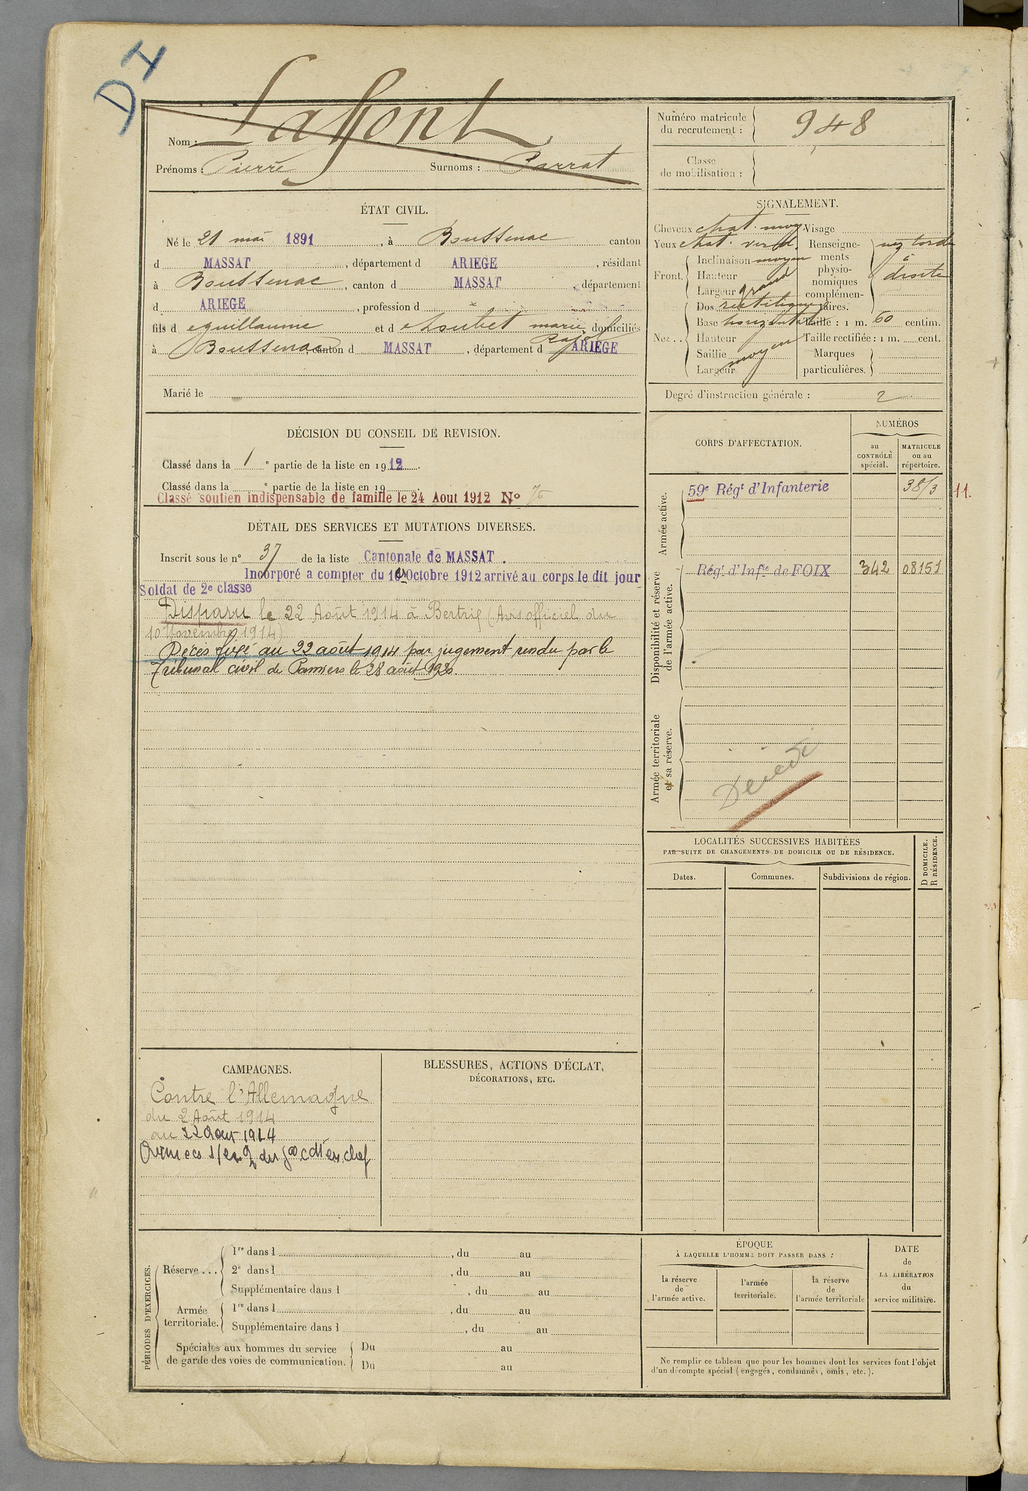 DI
Nom : Laffont
Prénoms : Pierre Surnoms : Parrat
ÉTAT CIVIL.
Né le 21 mai 1891, à Boussenac canton
d MASSAT, département d ARIEGE, résidant
à Boussenac, canton d MASSAT, département
d ARIEGE, profession d
fils d e guillaume et d e Loubet marie domiciliés
à Boussenac canton d MASSAT, département d ARIEGE
Marié le
DÉCISION DU CONSEIL DE REVISION.
Classé dans la 1e partie de la liste en 1912.
Classé dans la e partie de la liste en 19
Classé soutien indispensable de famille le 24 Aout 1912 No
DÉTAIL DES SERVICES ET MUTATIONS DIVERSES.
Inscrit sous le n° 37 de la liste Cantonale de MASSAT.
Incorporé à compter du 10 Octobre 1912 arrivé au corps le dit jour
Soldat de 2e classe
Disparu le 22 Août 1914 à Bertrix (Avis officiel du
10 Novembre 1914)
Décès fixé au 22 août 1914 par jugement rendu par le
Tribunal civil de Pamiers le 28 août 1920.
CAMPAGNES.
Contre l'Allemagne
du 2 Août 1914
au 22 Août 1914
Armées
BLESSURES, ACTIONS D'ÉCLAT,
DÉCORATIONS, ETC.
PÉRIODES D'EXERCICES.
Réserve...
1re dans l , du au
2e dans l , du au
Supplémentaire dans l , du au
Armée territoriale.
1re dans l , du au
Supplémentaire dans l , du au
Spéciales aux hommes du service
de garde des voies de communication.
Du au
Du au
Numéro matricule
du recrutement : 948
Classe
de mobilisation :
SIGNALEMENT.
Cheveux chat. moy. Visage
Yeux chat. verd. Renseignements physionomiques complémentaires. nez tordu à droite
Front. Inclinaison moyen
Hauteur
Largeur grand
Nez.. Dos rectiligne
Base horizontale Taille : 1 m. 60 centim.
Hauteur Taille rectifiée : 1 m. cent.
Saillie moyen Marques
Largeur particulières.
Degré d'instruction générale : 2
CORPS D'AFFECTATION.
NUMÉROS
au CONTRÔLE spécial.
MATRICULE ou au répertoire.
Armée active.
59e Régt d'Infanterie 3813 11.
Disponibilité et réserve
de l'armée active.
Régt d'Infie de FOIX 342 08151
Armée territoriale
et sa réserve.
Décédé
LOCALITÉS SUCCESSIVES HABITÉES
PAR SUITE DE CHANGEMENTS DE DOMICILE OU DE RÉSIDENCE.
Dates. Communes. Subdivisions de région. D DOMICILE. R RÉSIDENCE.
ÉPOQUE
À LAQUELLE L'HOMME DOIT PASSER DANS :
la réserve de l'armée active.
l'armée territoriale.
la réserve de l'armée territoriale
DATE de LA LIBÉRATION du service militaire.
Ne remplir ce tableau que pour les hommes dont les services font l'objet
d'un décompte spécial (engagés, condamnés, omis, etc.).